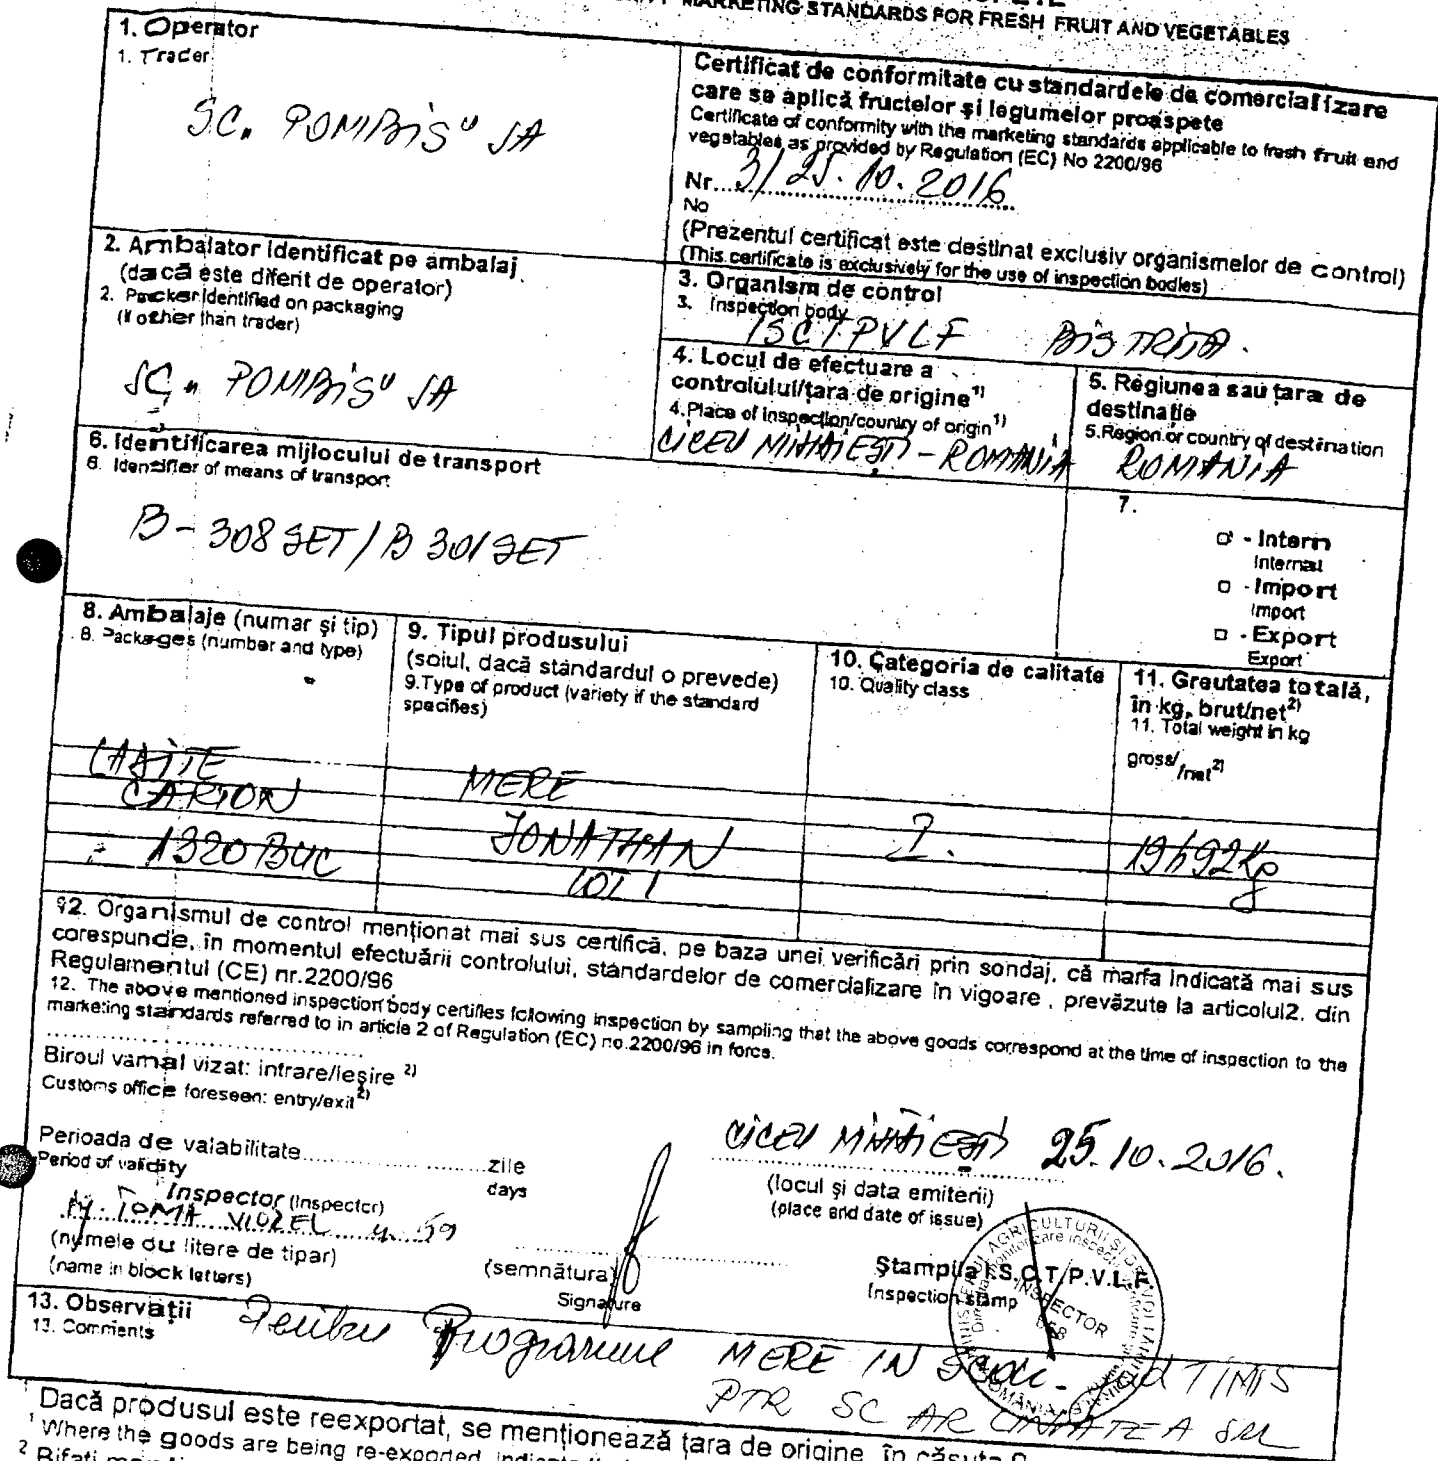 MARKETING STANDARDS FOR FRESH FRUIT AND VEGETABLES
1. Operator
1. Trader
S.C. "POMIBIS" SA
Certificat de conformitate cu standardele de comercializare
care se aplică fructelor şi legumelor proaspete
Certificate of conformity with the marketing standards applicable to fresh fruit and
vegetables as provided by Regulation (EC) No 2200/96
Nr. 3/25.10.2016
No
(Prezentul certificat este destinat exclusiv organismelor de control)
(This certificate is exclusively for the use of inspection bodies)
2. Ambalator identificat pe ambalaj
(dacă este diferit de operator)
2. Packer identified on packaging
(if other than trader)
SC "POMIBIS" SA
3. Organism de control
3. Inspection body
ISCTPVLF BISTRIȚA.
4. Locul de efectuare a
controlului/ţara de origine1)
4.Place of inspection/country of origin1)
CICEU MIHAIEȘTI - ROMANIA
5. Regiunea sau ţara de
destinaţie
5.Region or country of destination
ROMANIA
6. Identificarea mijlocului de transport
6. Identifier of means of transport
B-308 JET / B 301 JET
7.
- Intern
Internal
- Import
Import
- Export
Export
8. Ambalaje (numar şi tip)
8. Packages (number and type)
9. Tipul produsului
(soiul, dacă standardul o prevede)
9.Type of product (variety if the standard
specifies)
10. Categoria de calitate
10. Quality class
11. Greutatea totală,
în kg, brut/net2)
11. Total weight in kg
gross/net2)
LADITE MERE
CARTON
1320 BUC JONATHAN I. 19692 Kg
LOT 1
12. Organismul de control menţionat mai sus certifică, pe baza unei verificări prin sondaj, că marfa indicată mai sus
corespunde, în momentul efectuării controlului, standardelor de comercializare în vigoare , prevăzute la articolul2. din
Regulamentul (CE) nr.2200/96
12. The above mentioned inspection body certifies following inspection by sampling that the above goods correspond at the time of inspection to the
marketing standards referred to in article 2 of Regulation (EC) no.2200/96 in force.
Biroul vamal vizat: intrare/ieşire 2)
Customs office foreseen: entry/exit2)
CICEU MIHAIEȘTI 25.10.2016.
Perioada de valabilitate.................... zile
Period of validity days
(locul şi data emiterii)
(place and date of issue)
Inspector (Inspector)
TOMA VIOREL
(numele cu litere de tipar)
(name in block letters)
(semnătura)
Signature
Ştampila I.S.C.T.P.V.L.F.
Inspection stamp
INSPECTOR
ROMÂNIA
13. Observaţii
13. Comments
Pentru Programul MERE IN SCOLI - jud TIMIS
PTR SC
Dacă produsul este reexportat, se menţionează ţara de origine, în căsuţa
1 Where the goods are being re-exported,